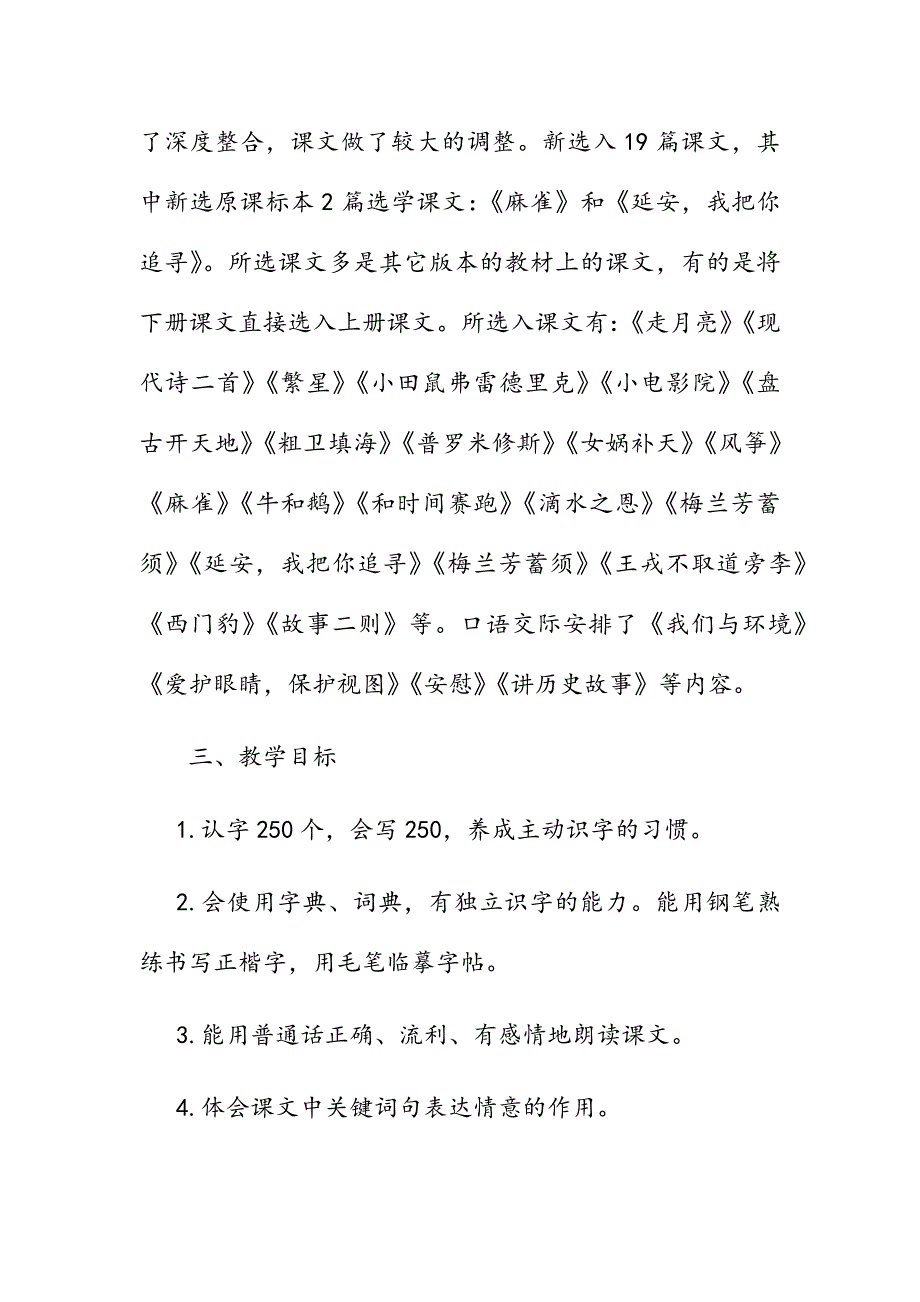 了深度整合，课文做了较大的调整。新选入 19 篇课文，其
中新选原课标本 2 篇选学课文：《麻雀》和《延安，我把你
追寻》。所选课文多是其它版本的教材上的课文，有的是将
下册课文直接选入上册课文。所选入课文有：《走月亮》《现
代诗二首》《繁星》《小田鼠弗雷德里克》《小电影院》《盘
古开天地》《粗卫填海》《普罗米修斯》《女娲补天》《风筝》
《麻雀》《牛和鹅》《和时间赛跑》《滴水之恩》《梅兰芳蓄
须》《延安，我把你追寻》《梅兰芳蓄须》《王戎不取道旁李》
《西门豹》《故事二则》等。口语交际安排了《我们与环境》
《爱护眼睛，保护视图》《安慰》《讲历史故事》等内容。
三、教学目标
1.认字 250 个，会写 250，养成主动识字的习惯。
2.会使用字典、词典，有独立识字的能力。能用钢笔熟
练书写正楷字，用毛笔临摹字帖。
3.能用普通话正确、流利、有感情地朗读课文。
4.体会课文中关键词句表达情意的作用。